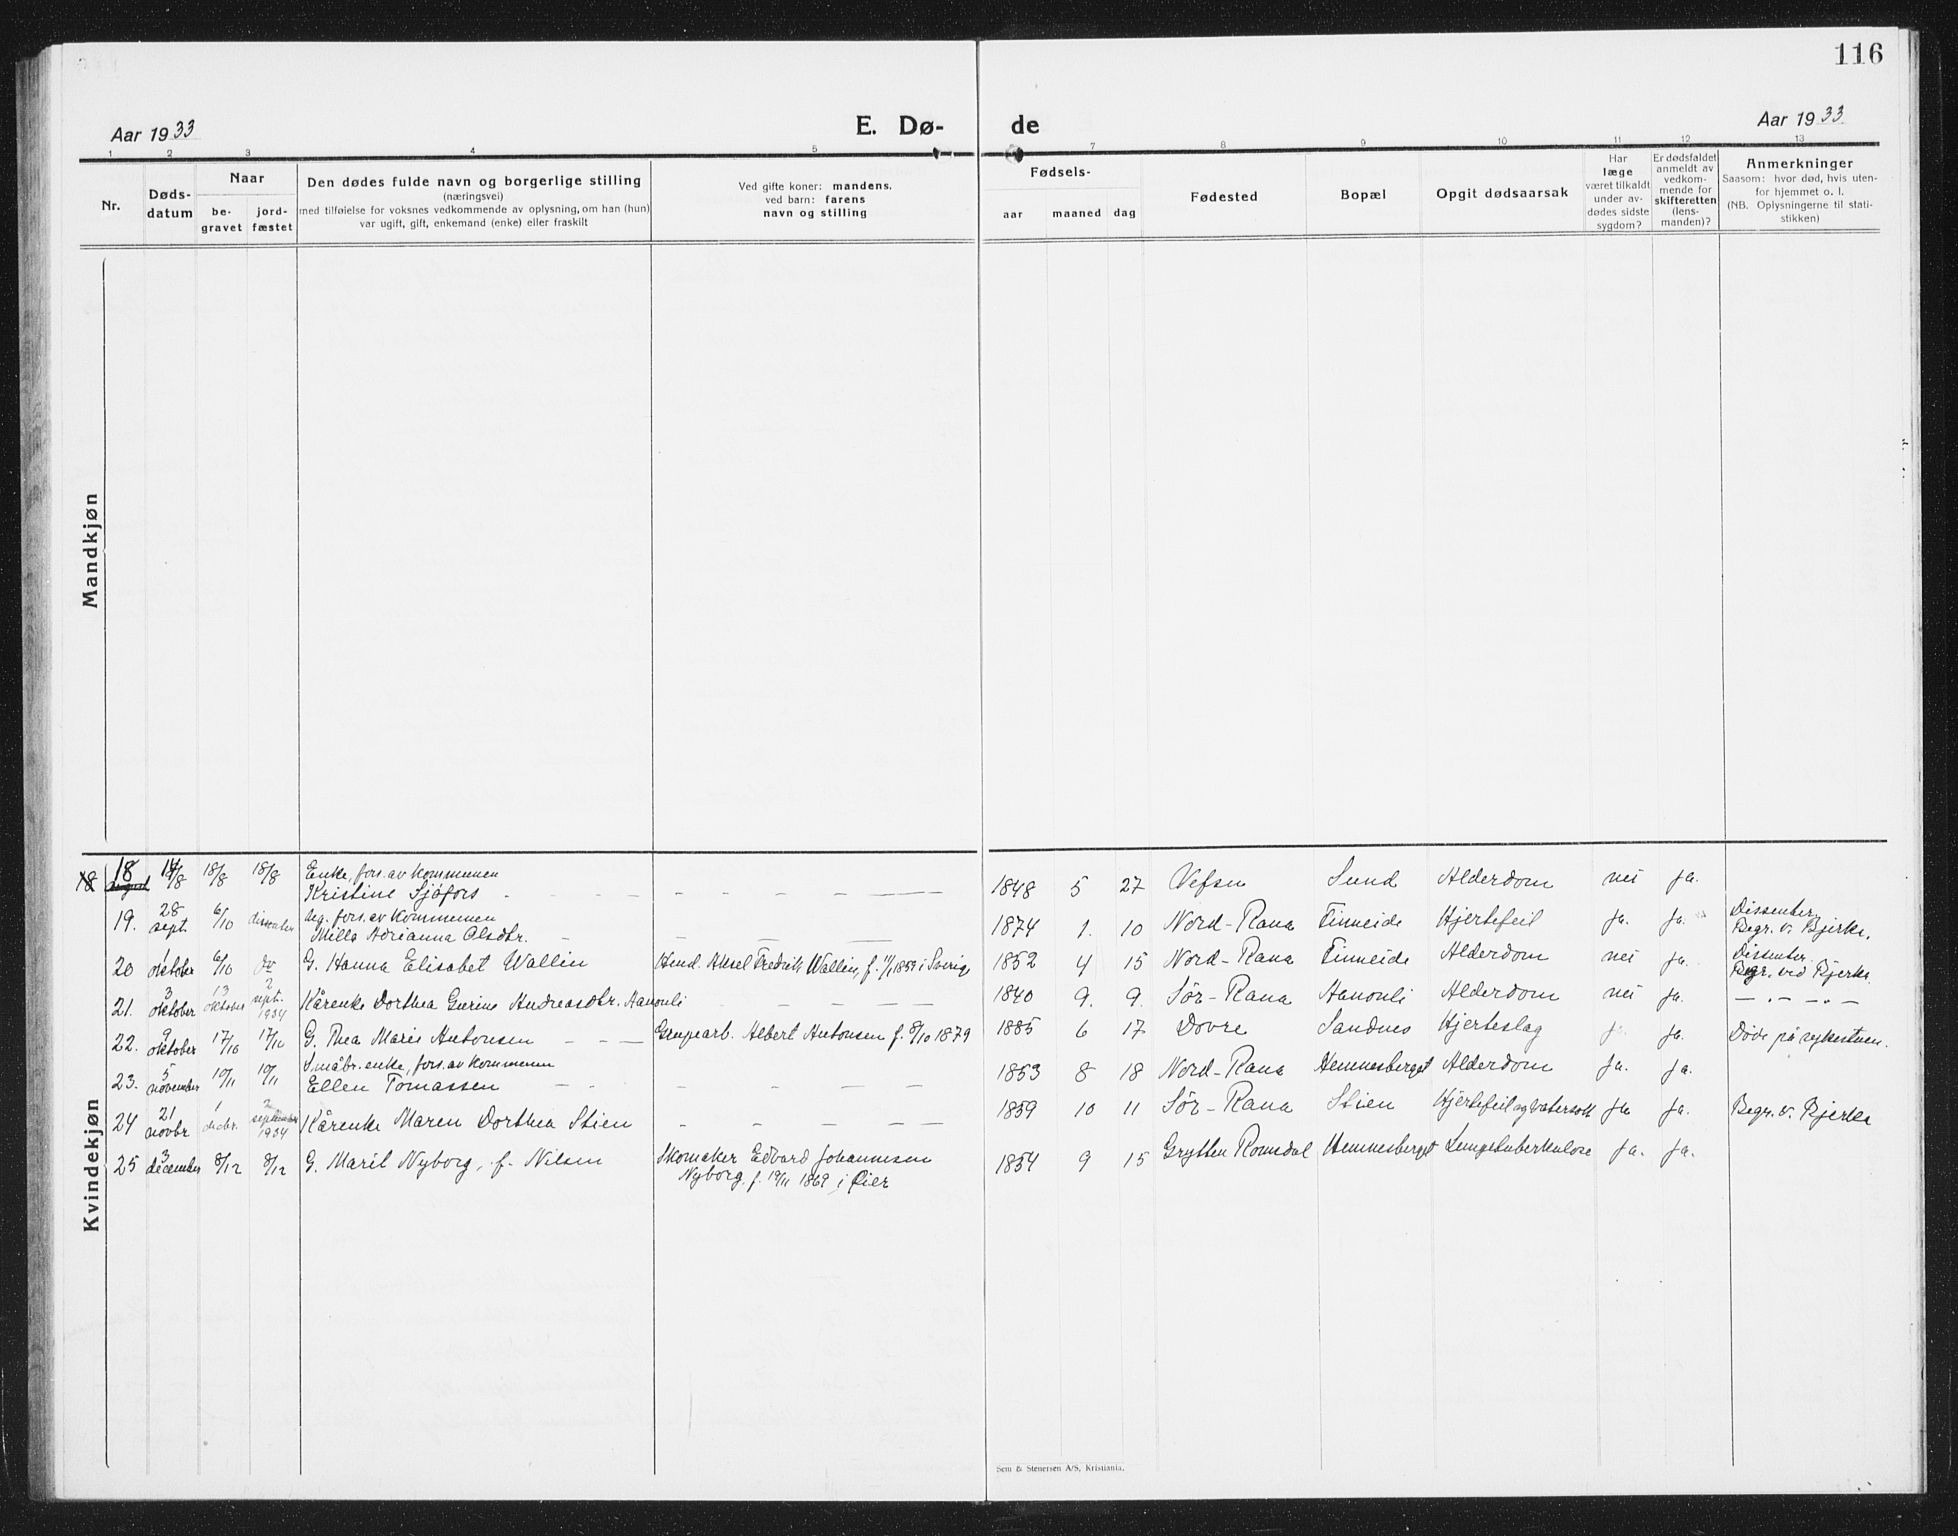 116
Aar 1933
E. Dø-
de
Aar 1933
1 2 3 4 5 7 8 9 10 11 12 13
Nr.
Døds-
datum
Naar
be-
gravet
jord-
fæstet
Den dødes fulde navn og borgerlige stilling
(næringsvei)
med tilføielse for voksnes vedkommende av oplysning, om han (hun)
var ugift, gift, enkemand (enke) eller fraskilt
Ved gifte koner: mandens.
ved barn: farens
navn og stilling
Fødsels-
aar maaned dag
Fødested
Bopæl
Opgit dødsaarsak
Har
læge
været tilkaldt
under av-
dødes sidste
sygdom?
Er dødsfaldet
anmeldt av
vedkom-
mende for
skifteretten
(lens-
manden)?
Anmerkninger
Saasom: hvor død, hvis uten-
for hjemmet o. l.
(NB. Oplysningerne til stati-
stikken)
Mandkjøn
Kvindekjøn
18 august 14/8 18/8 18/8 Enke, fors. av kommunen
Kristine Sjøfors 1848 5 27 Vefsn Sund Alderdom nei ja.
19. 28 sept. 6/10 dissenter ug. fors. av kommunen
Milla Adrianna Olsdtr. 1874 1. 10 Nord-Rana Finneide Hjertefeil ja. ja. Dissenter.
Begr. v. Bjerka.
20 1 oktober 6/10 G. Hanna Elisabet Wallin Aksel Fredrik Wallin, f. 1/1 1859 i Sverige 1852 4 15 Nord-Rana Finneide Alderdom nei ja. Dissenter.
Begr. ved Bjerka.
21. 3 oktober 13 oktober 2 sept. 1934 Kårenke Dorthea Gurine Andreasdtr. Hanonli 1840 9. 9. Sør-Rana Hanonli Alderdom nei ja. — . — . —
22. 9 oktober 17/10 17/10 G. Thea Marie Antonsen Albert Antonsen f. 8/10 1879 1885 6 17 Dovre Sandnes Hjerteslag j ja. Døde på sykestuen.
23. 5 november 10/11 10/11 Småbr. enke, fors. av kommunen
Ellen Tomassen 1853 8 18 Nord-Rana Hemnesberget Alderdom ja. ja.
24 21 novbr 1 decbr. 2 september 1934 Kårenke Maren Dorthea Stien 1859 10 11 Sør-Rana Stien Hjertefeil og vatersott ja ja. Begr. v. Bjerka
25 3 december 8/12 8/12 G. Marit Nyborg, f. Nilsen Skomaker Edvard Johannesen
Nyborg, f. 19/11 1869 i Øier 1854 9 15 Grytten Romsdal Hemnesberget Lungetuberkulose ja. ja.
Sem & Stenersen A/S, Kristiania.